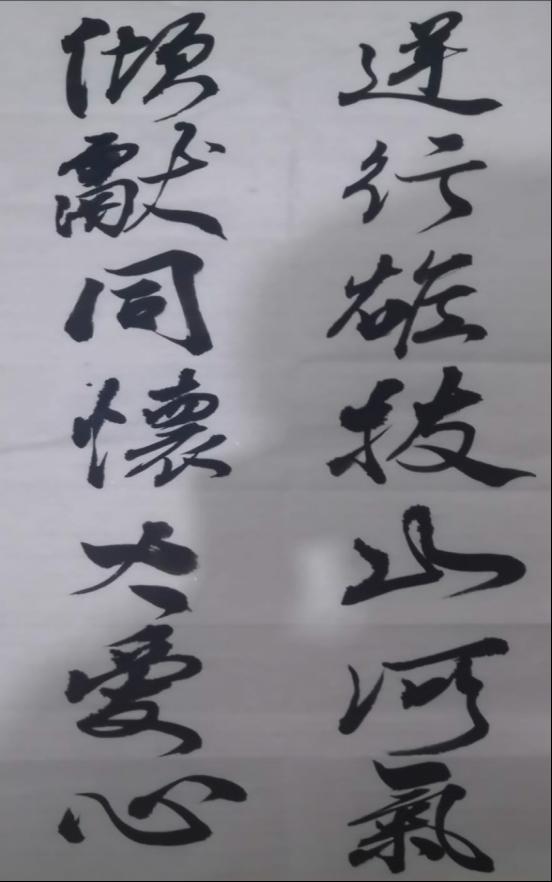 逆行雄披山河氣
傾獻同懷大愛心